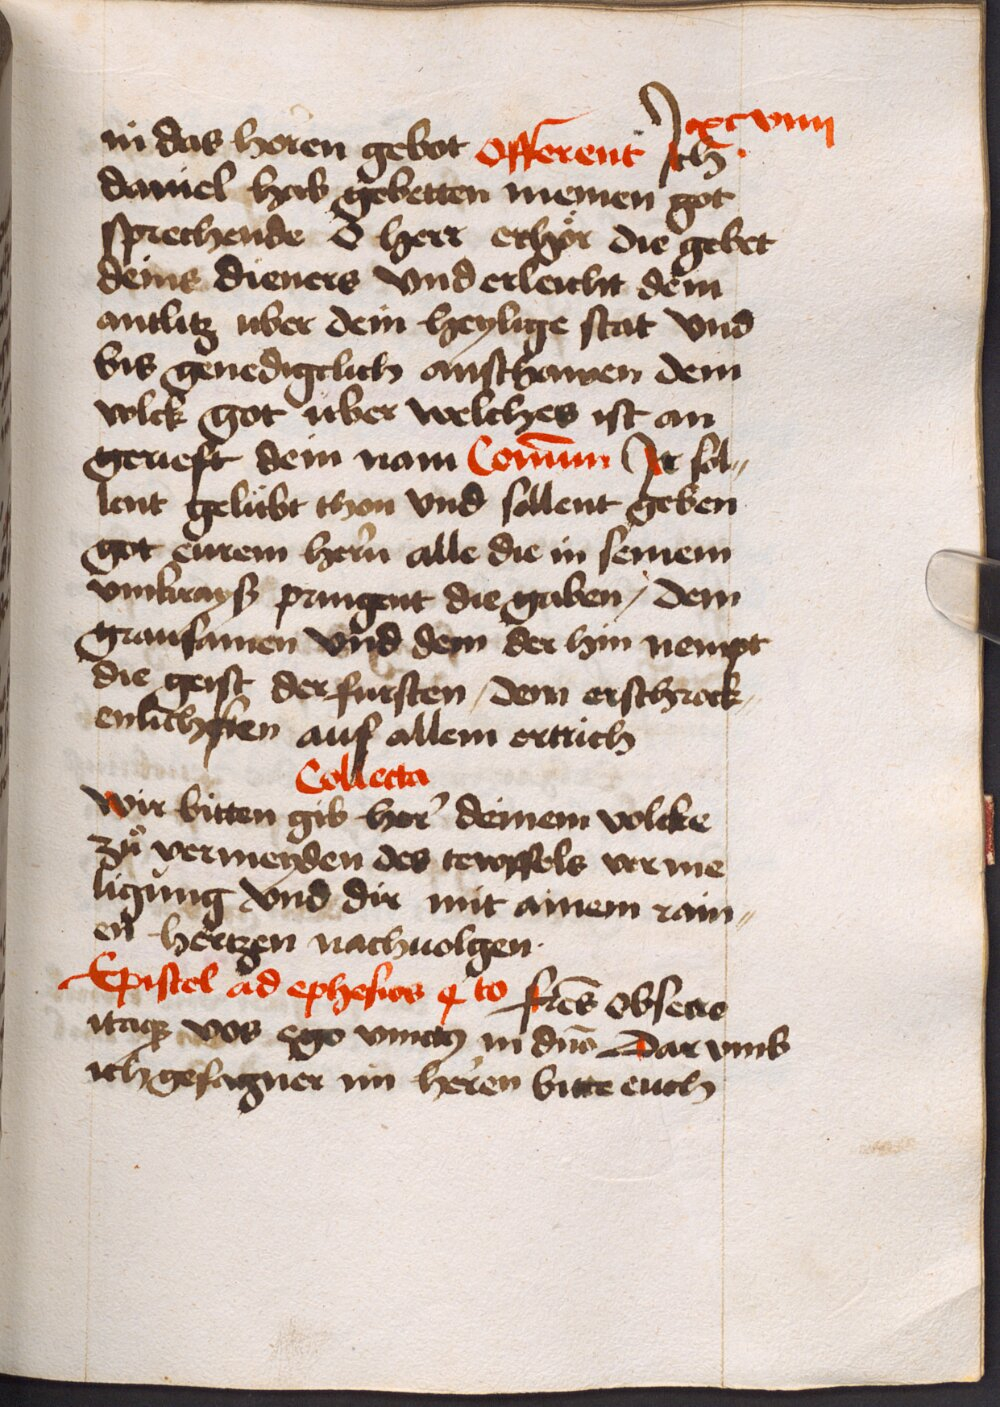 xcviiij
in das horen gebot Offerent Ich
daniel hab gebetten meinen got
sprechende O herr erhör die gebet
deins dieners vnd erleicht dein
antlitz uber dein heylige stat vnd
bis genedigclich anschawen dein
volck got uber welches ist an
gerieft dein nam Com̄un Ir sol„
lent gelübt thon vnd sollent geben
got eurem hern alle die in seinem
vmkrayß pringent die gaben / dem
grausamen vnd dem der hin nempt
die geist der fursten / dem erschrock„
enlichsten auf allem ertrich
Collecta
wir bitten gib her̄ deinem volcke
zů vermeyden des tewffels verme
ligung vnd dir mit ainem rain„
en hertzen nachuolgen.
Epistel ad ephesios q̄to fr̄es obsecro
itaqꝫ vos ego vinctꝰ in dn̄o Dar vmb
ich gefagner im heren bitte euch